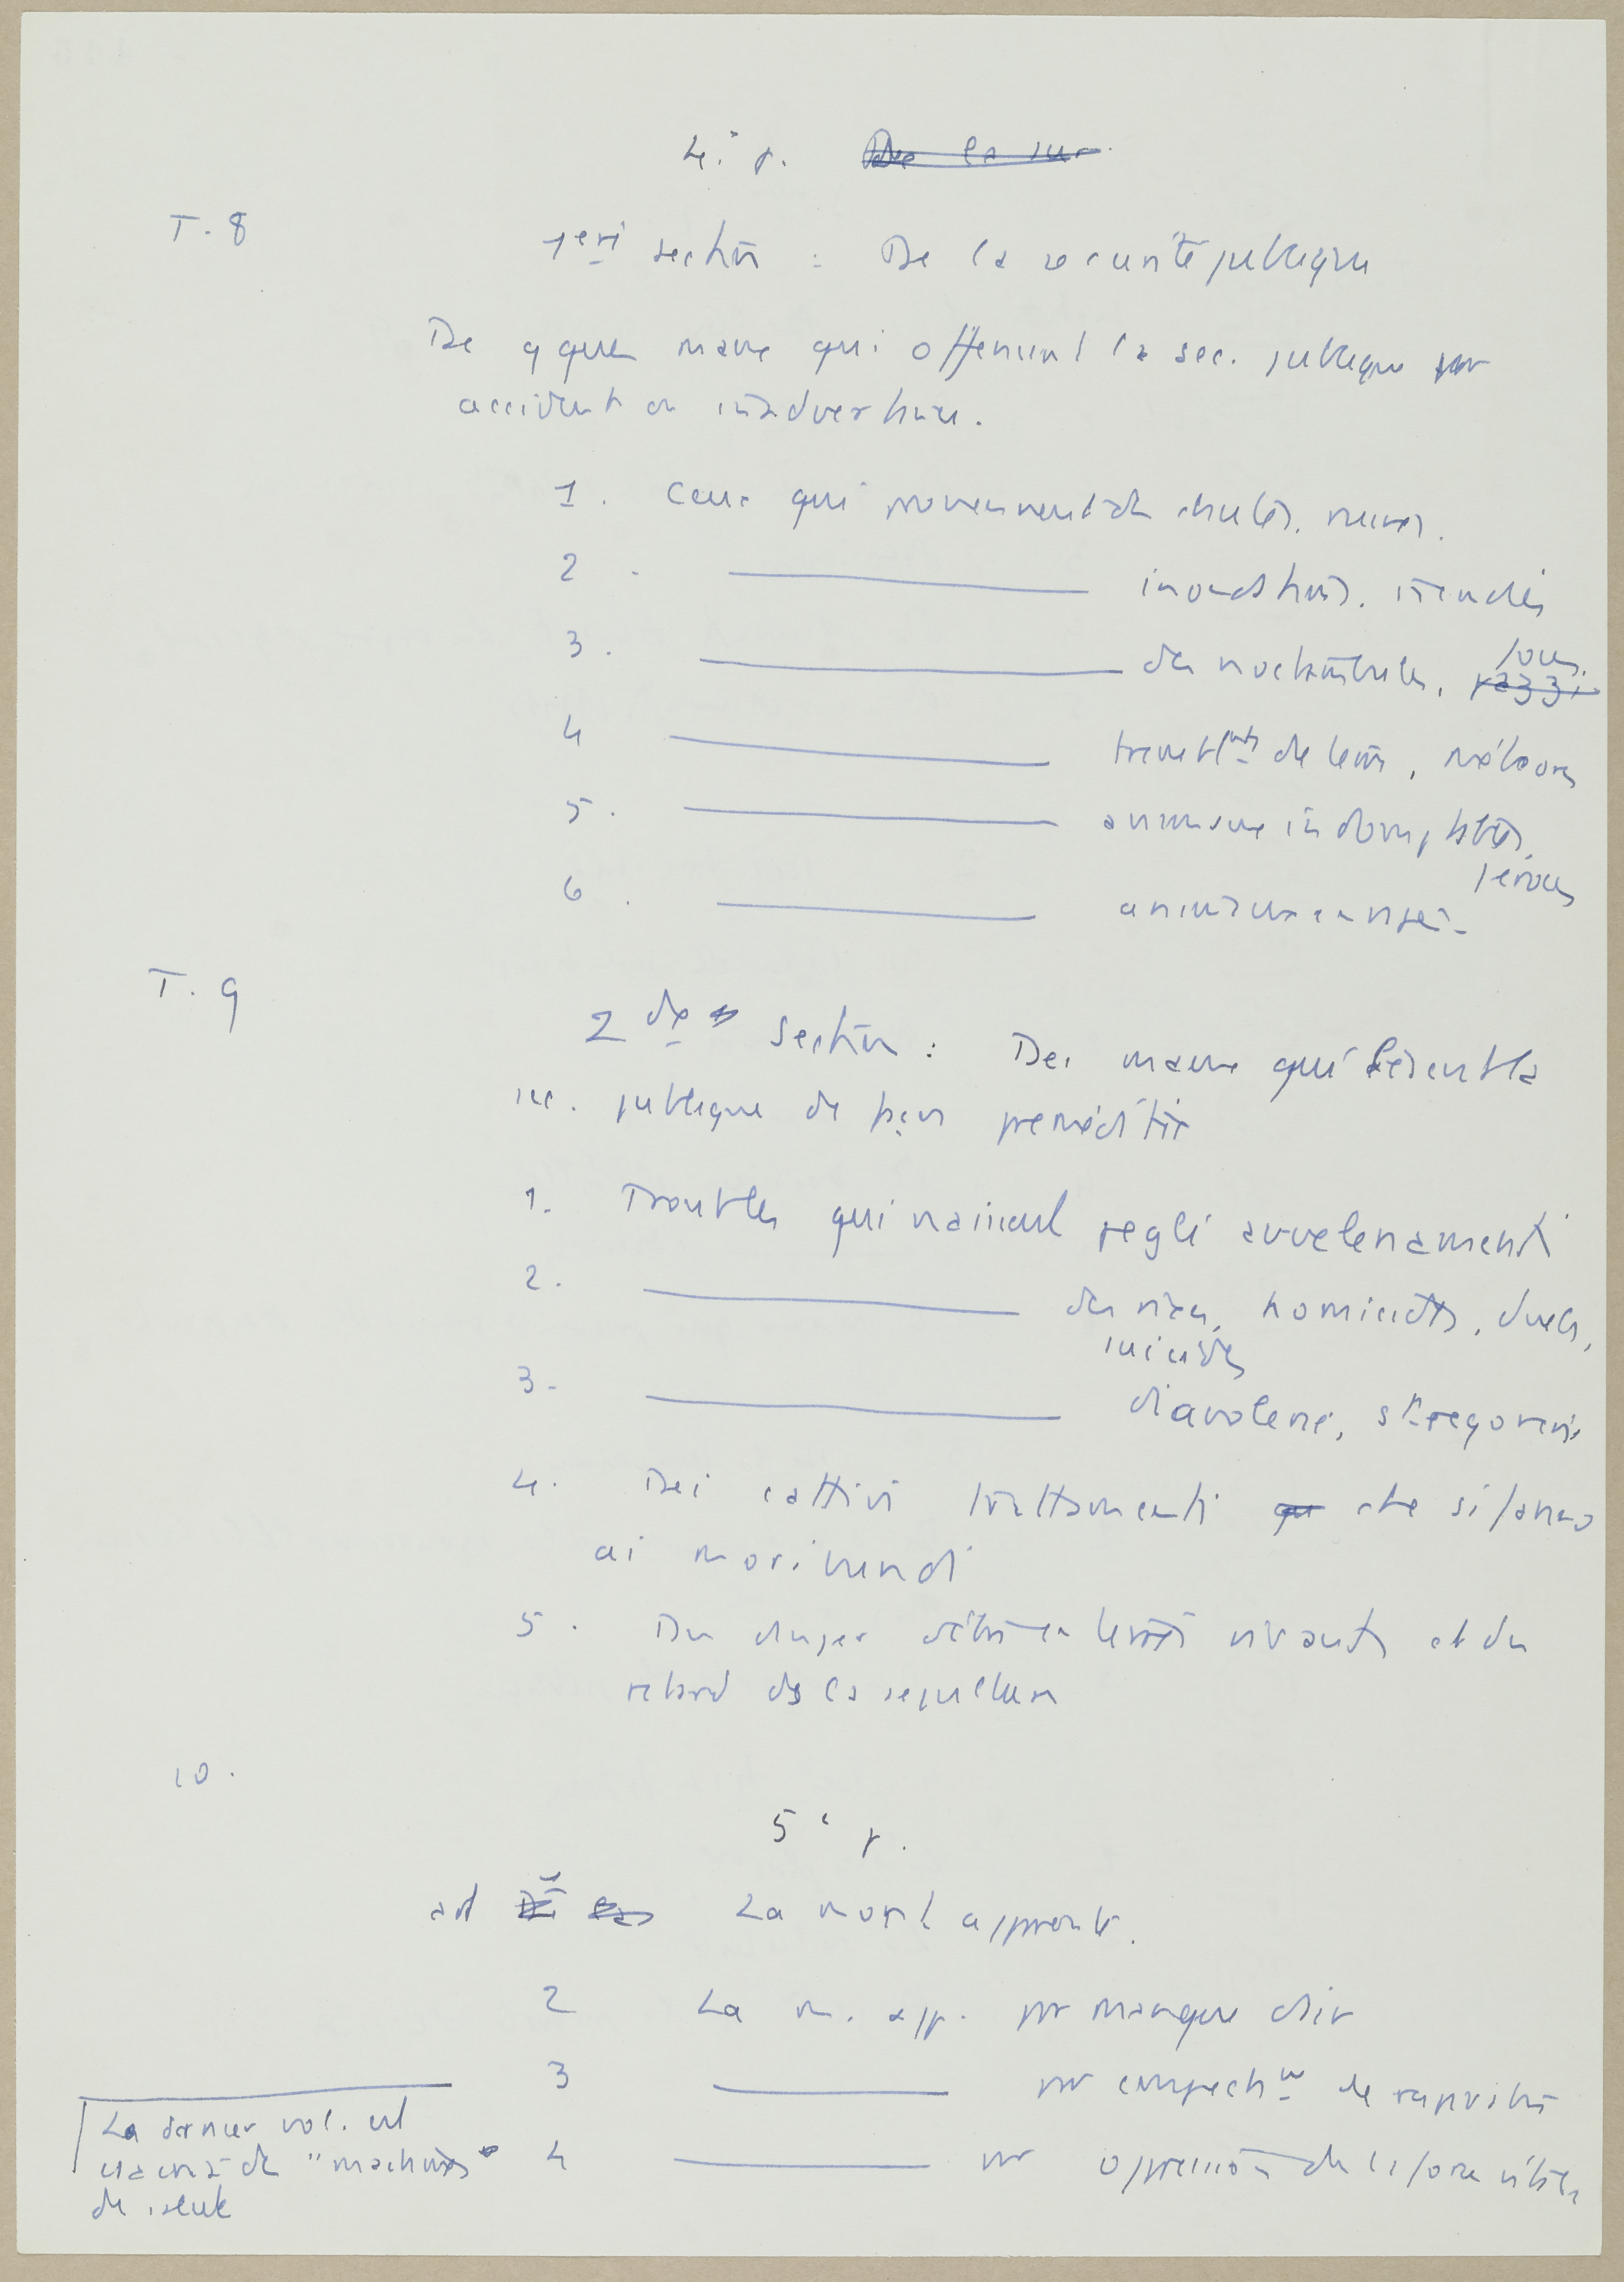 4.e p. De la sur
T. 8
1ère section : De la sécurité publique
De qques maux qui offensent la sec. publique par
accident ou inadvertance.
1. Ceux qui proviennent de chutes, ruines.
2. inondations, incendies
3. des noctambules, fous, pazzi
4 tremblmts de terre, météores
5. animaux indomptés, féroces
6. animaux enragés
T. 9
2de section : Des maux qui lèsent la
sec. publique de façon préméditée
1. Troubles qui naissent pegli avvelenamenti
2. des rixes, homicides, duels,
suicides
3. diavolerie, stregonerie
4. Dei cattivi trattamenti qu che si fanno
ai moribundi
5. Du danger d'être enterrés vivants et du
retard de la sepulture
10.
5e p.
La mort apparente.
2 La m. app. par manque d'air
3 par empechmt de respiration
4 par oppression de la force vitale
La dernier vol. est
de "machines"
de